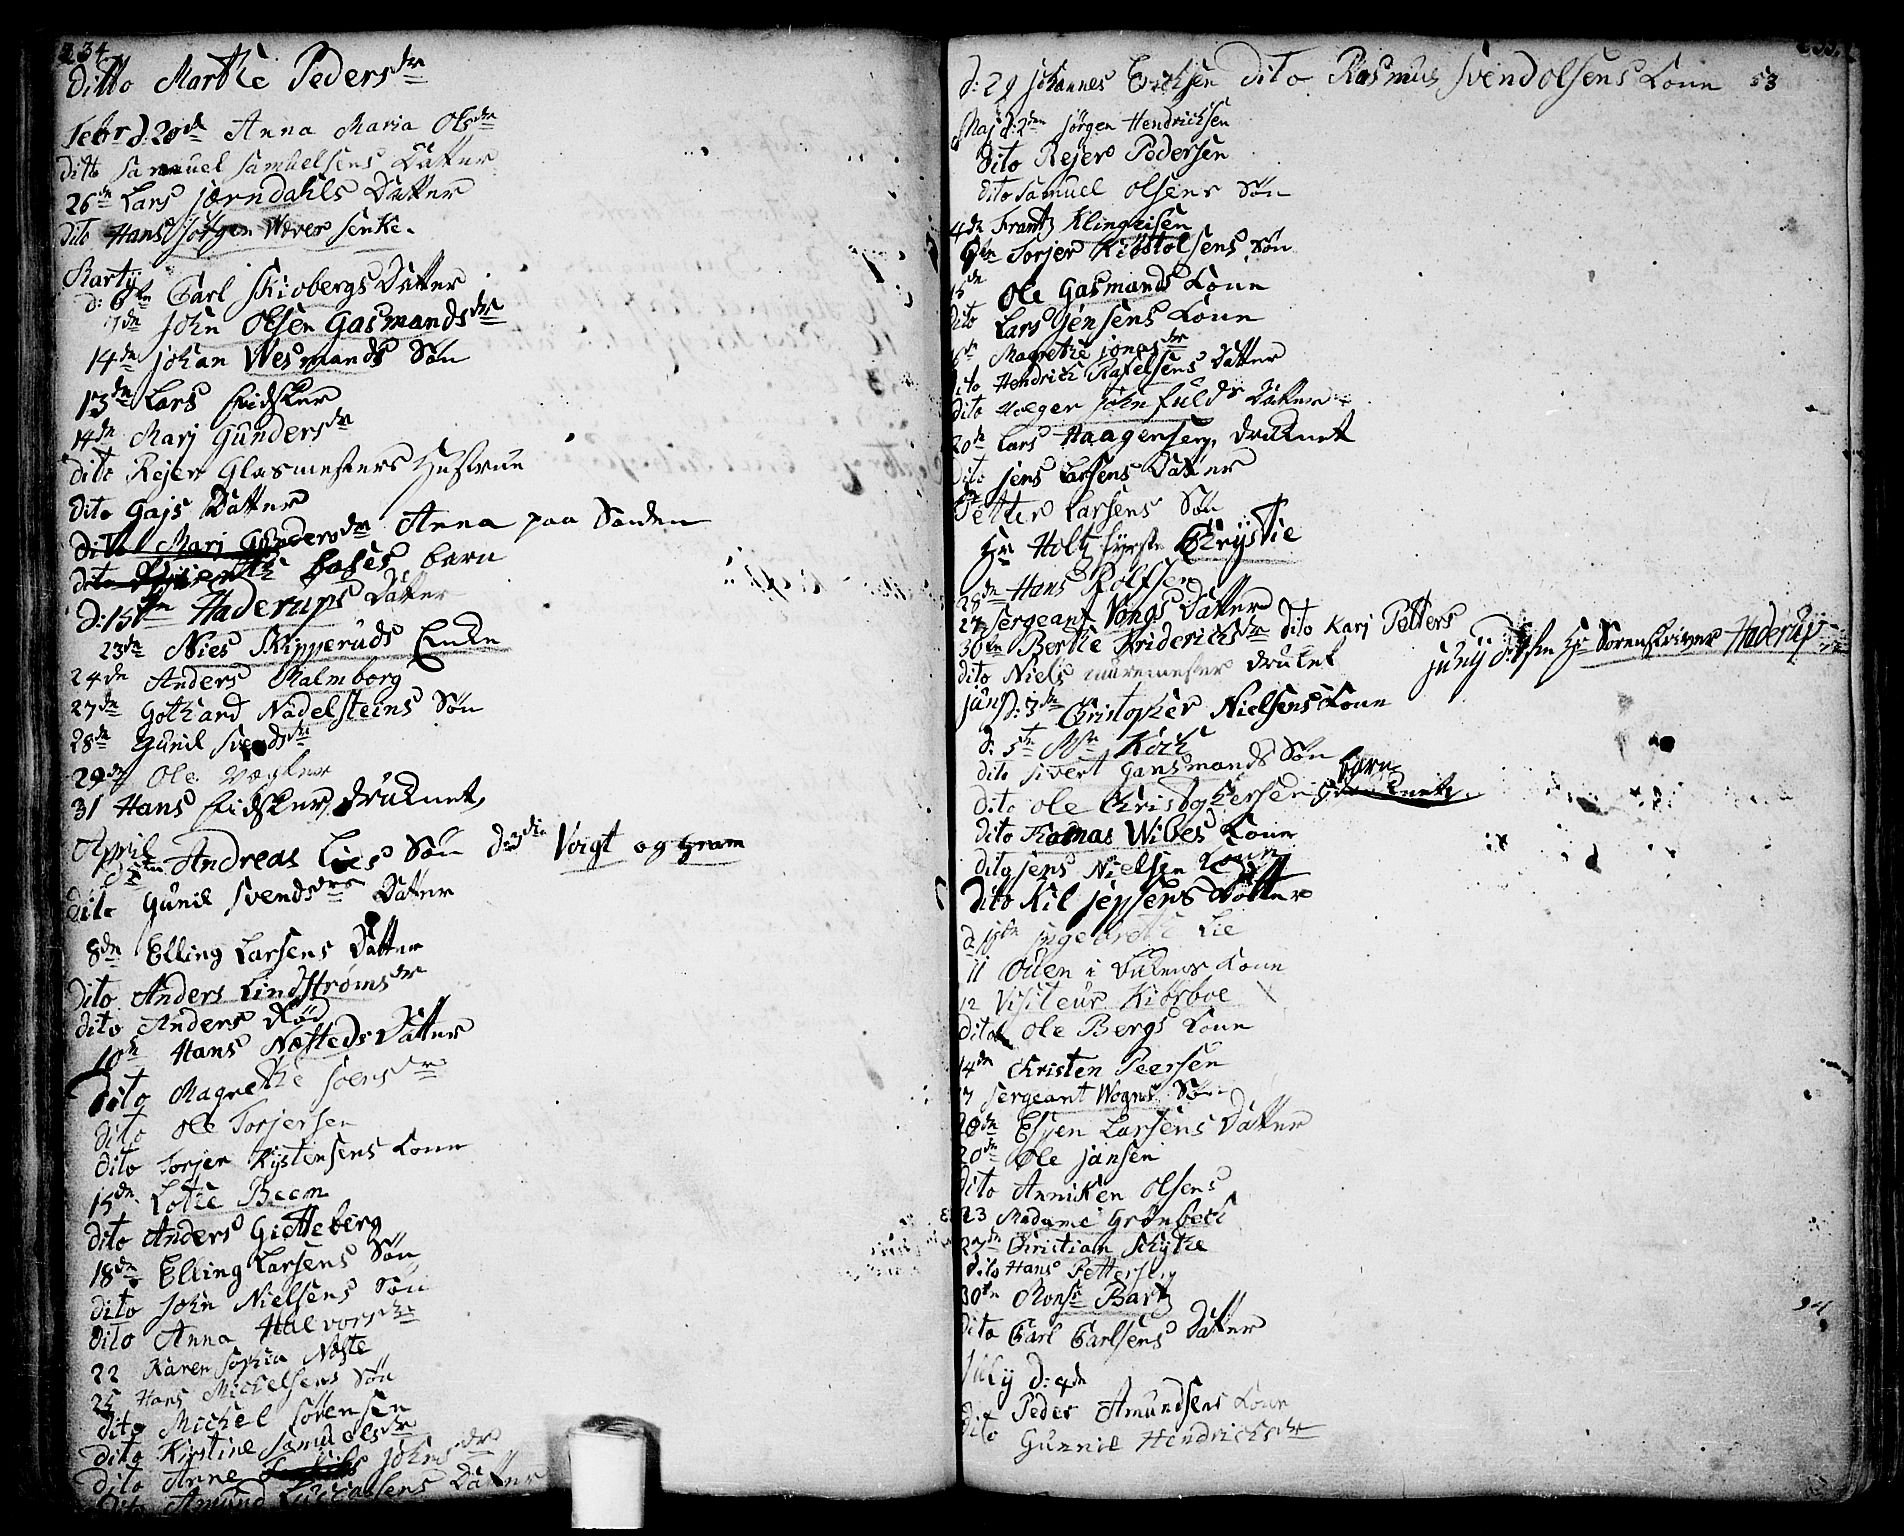 234.
Ditto Marthe Pedersdr
Febr d: 20de Anna Maria Olsdr
dito Samuel Samuelsens Datter
26de Lars Jerndahls Datter
Dito Hans Jørgen Wever Enke.
Martij
d: 6te Carl Skiobergs Datter
7de John Olsen Gasmandsdr
14de Johan Wesmands Søn
13de Lars Eidsker
14de Marj Gundersdr
dito Rejer Glasmesters Hustrue
dito Gajs Datter
dito Marj Gundersdr Anna paa Sanden
dito Boses barn
D: 15de Haderups Datter
23de Nies Skipperuds Encke
24de Anders Malmborg
27de Gothard Nadelsteins Søn
28de Gunil Svendsdr
29de Ole Vægter
31 Hans Eidsker, druknet,
April
d: 1ste Andreas Lies Søn d: 3die Voigt og Gram
Dito Gunil Svendsdrs Datter
8de Elling Larsens Datter
Dito Anders Lindstrømsdr
dito Anders Rød
10de Hans Næsteds Datter
Dito Magrethe Soensdr
dito Ole Torjersen
dito Torjer Kystensens Kone
15de Lothe Beem
dito Anders Gietteberg
18de Elling Larsens Søn
dito John Nielsens Søn
dito Anna Halvorsdr
22 Karen Sophia Næste
25 Hans Michelsens Søn
dito Michel Sørensen
dito Kirstine Samuelsdr
dito Anne Johnsdr
dito Amund Datter
d: 29 Johannes Erichsen dito Rasmus Svendolsens Kone 53
Maj d: 2den Jørgen Hendrichsen
dito Rejer Pedersen
dito Samuel Olsens Søn
4de Frantz Klingeisen
6te Torjer Kiøstolsens Søn
15de Ole Gasmands Kone
Dito Lars Jensens Kone
Magrethe Jonasdr
dito Hendrich Rafelsens Datter
dito Holger John fulds Datter
20de Lars Haagensen, druknet
Dito Jens Larsens Datter
Petter Larsens Søn
Hr Holtz fyrste Chrystie
28de Hans Rolfsen
27 Sergeant Vongs Datter
30te Berthe Fridericksdr dito Karj Petters
dito Niels muremester druknet
Junij d: 7de Hr Sorenskriver Haderup
Junj d: 3de Christopher Nielsens Kone
d: 5te Msr Koch
dito Sivert Gansmands Søn
dito Ole Christophersen barn
dito Thomas Wibes Kone
dito Jens Nielsen Kone
dito Nil Jepsens Datter
Ingebrethe Lie
11 Ouen i Kone
12 Visiteur Kiørboe
dito Ole Bergs Kone
14de Christen Peersen
Sergeant Wogns Søn
20de Espen Larsens Datter
20de Ole Jansen
dito Anniken Olsens
23 Madame Grønbech
27de Christian Schythe
dito Hans Pettersen
30te Monsr Bartz
dito Carl Carlsens Datter
July d: 4de
Peder Amundsens Kone
dito Gunnil Hendrichsdr